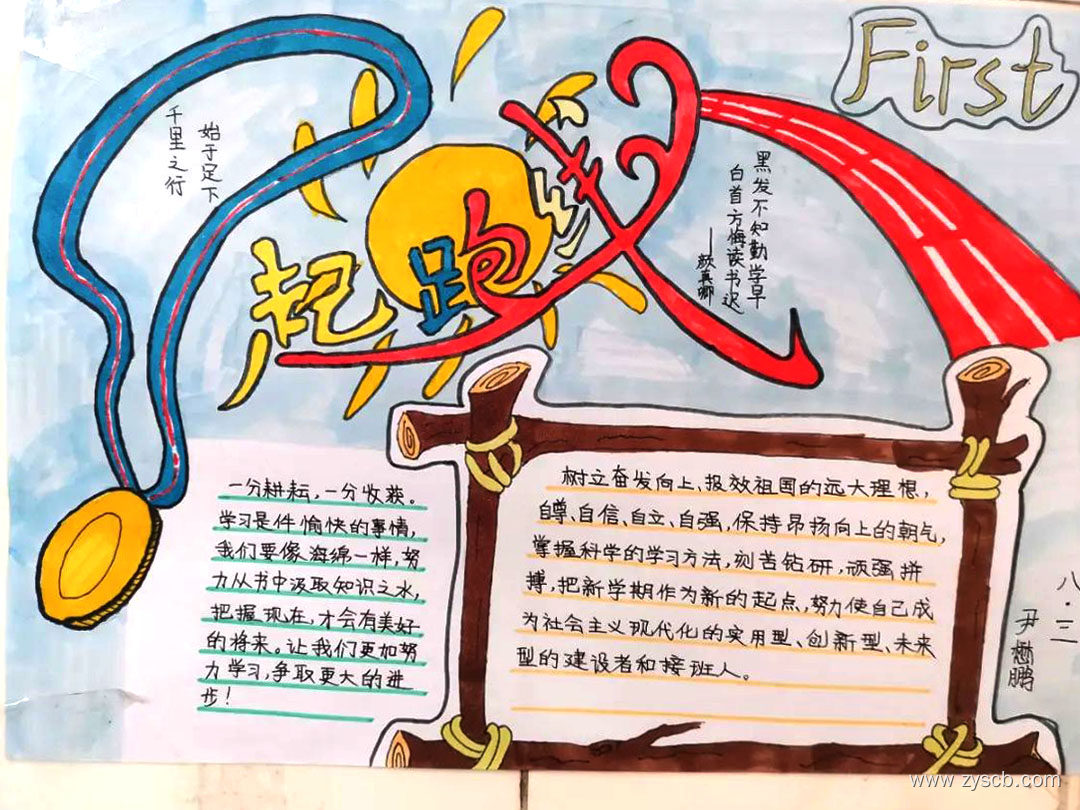 First
千里之行
始于足下
起跑线
黑发不知勤学早
白首方悔读书迟
——颜真卿
一分耕耘，一分收获。
学习是件愉快的事情，
我们要像海绵一样，努
力从书中汲取知识之水，
把握现在，才会有美好
的将来。让我们更加努
力学习，争取更大的进
步！
树立奋发向上、报效祖国的远大理想，
自尊、自信、自立、自强，保持昂扬向上的朝气，
掌握科学的学习方法，刻苦钻研，顽强拼
搏，把新学期作为新的起点，努力使自己成
为社会主义现代化的实用型、创新型、未来
型的建设者和接班人。
八·三
尹懋鹏
www.zyscb.com